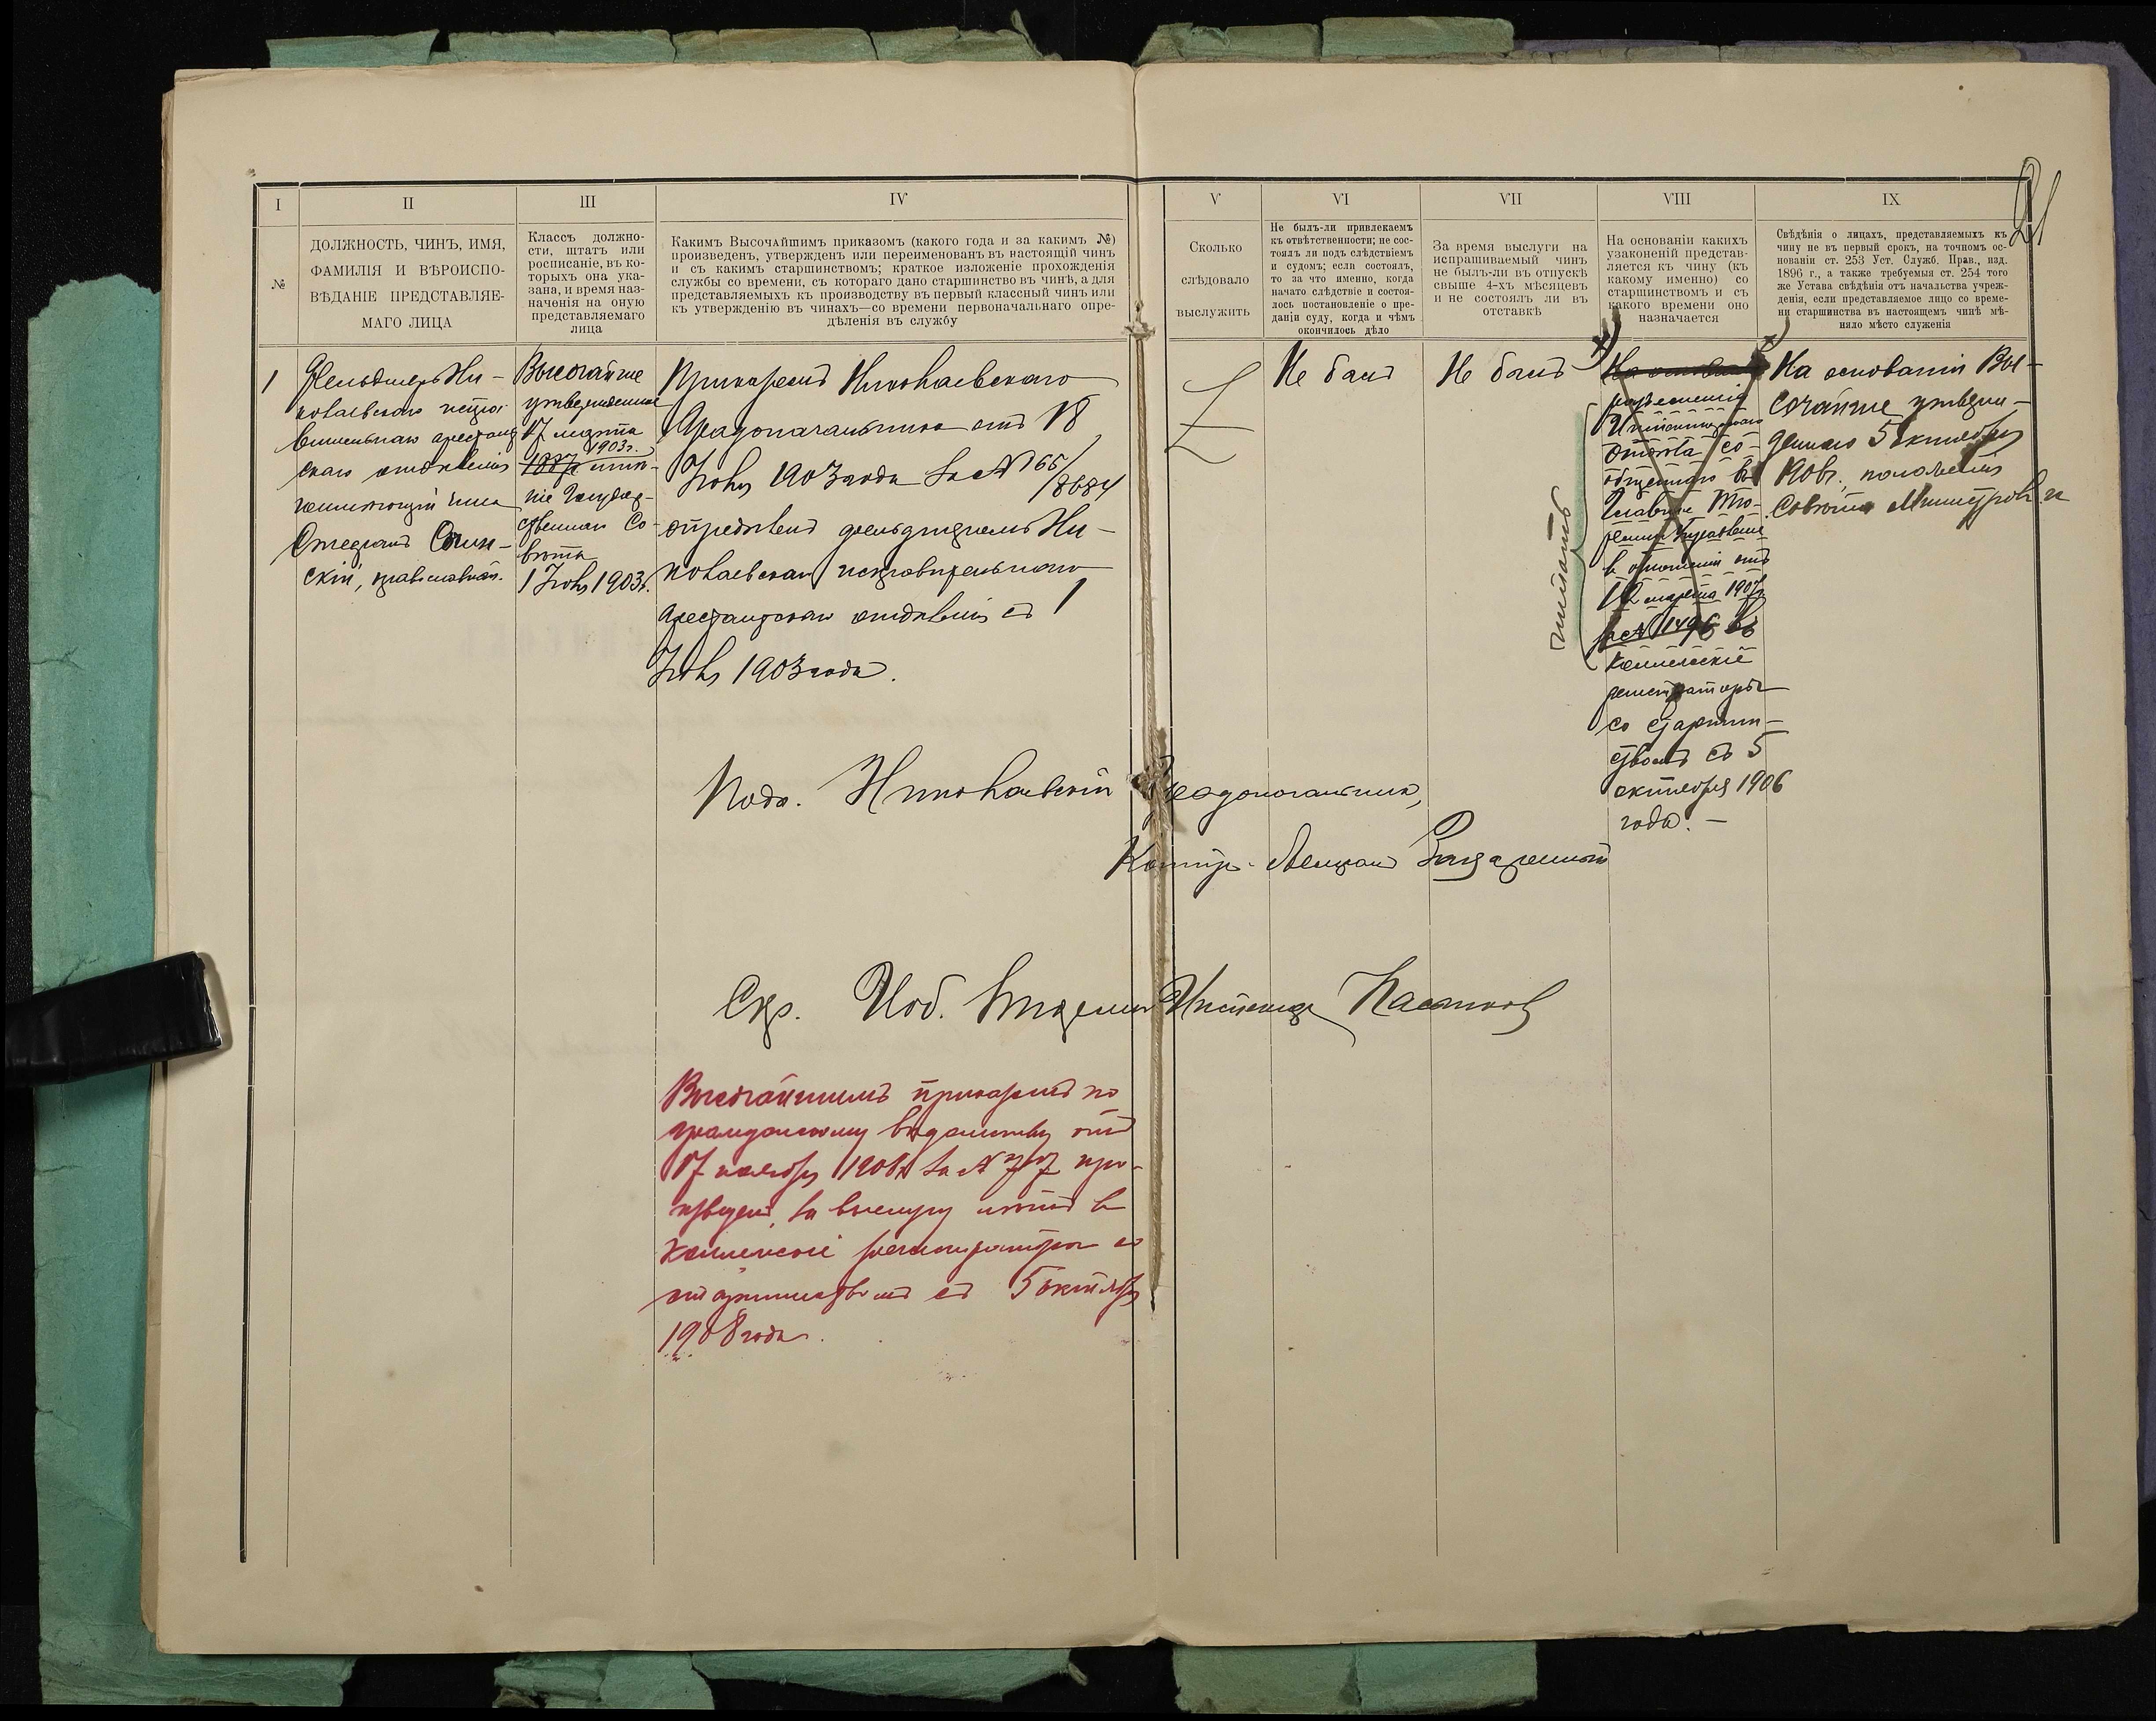 21
I
II
III
IV
V
VI
VII
VIII
IX
№
ДОЛЖНОСТЬ, ЧИНЪ, ИМЯ,
ФАМИЛІЯ И ВѢРОИСПО-
ВѢДАНІЕ ПРЕДСТАВЛЯЕ-
МАГО ЛИЦА
Классъ должно-
сти, штатъ или
росписаніе, въ ко-
торыхъ она ука-
зана, и время наз-
наченія на оную
представляемаго
лица
Какимъ Высочайшимъ приказомъ (какого года и за какимъ №)
произведенъ, утвержденъ или переименованъ въ настоящій чинъ
и съ какимъ старшинствомъ; краткое изложеніе прохожденія
службы со времени, съ котораго дано старшинство въ чинѣ, а для
представляемыхъ къ производству въ первый классный чинъ или
къ утвержденію въ чинахъ—со времени первоначальнаго опре-
дѣленія въ службу
Сколько
слѣдовало
выслужить
Не былъ-ли привлекаемъ
къ отвѣтственности; не сос-
тоялъ ли подъ слѣдствіемъ
и судомъ; если состоялъ,
то за что именно, когда
начато слѣдствіе и состоя-
лось постановленіе о пре-
даніи суду, когда и чѣмъ
окончилось дѣло
За время выслуги на
испрашиваемый чинъ
не былъ-ли въ отпускѣ
свыше 4-хъ мѣсяцевъ
и не состоялъ ли въ
отставкѣ
На основаніи какихъ
узаконеній представ-
ляется къ чину (къ
какому именно) со
старшинствомъ и съ
какого времени оно
назначается
Свѣдѣнія о лицахъ, представляемыхъ къ
чину не въ первый срокъ, на точномъ ос-
нованіи ст. 253 Уст. Служб. Прав., изд.
1896 г., а также требуемыя ст. 254 того
же Устава свѣдѣнія отъ начальства учреж-
денія, если представляемое лицо со време-
ни старшинства въ настоящемъ чинѣ мѣ-
няло мѣсто служенія
1
Фельдшеръ Ни-
колаевскаго испра-
вительнаго арестант
скаго отдѣленія
неимѣющій чина
Степанъ
скій, православнаго.
Высочайше
утвержденное
17 марта
1903г.
1887 мнѣ-
ніе Государ-
ственнаго Со-
вѣта
1 Іюня 1903г.
Приказомъ Николаевскаго
Градоначальника отъ 18
Іюня 1903 года за № 165/
8684
опредѣленъ фельдшеромъ Ни-
колаевскаго исправительнаго
арестантскаго отдѣленія съ 1
Іюня 1903 года.
Не былъ
Не былъ
На основаніи
разъясненія
Инспекторскаго
отдѣла со-
общеннаго въ
Главное Тю-
ремное Управленіе
въ отношеніи отъ
12 марта 1907г
за № 1496 въ
коллежскіе
регистраторы
со старшин-
ствомъ съ 5
октября 1906
года. —
читать
На основаніи Вы-
сочайше утверж-
деннаго 5 октября
1906г. положенія
Совѣта Министровъ
Подп. Николаевскій Градоначальникъ,
Контръ-Адмиралъ Зацаренный
Скр.
Высочайшимъ приказомъ по
гражданскому вѣдомству отъ
17 ноября 1908г за № 77 про-
изведенъ, за выслугу лѣтъ въ
Коллежскіе регистраторы со
старшинствомъ съ 5 октября
1908 года.